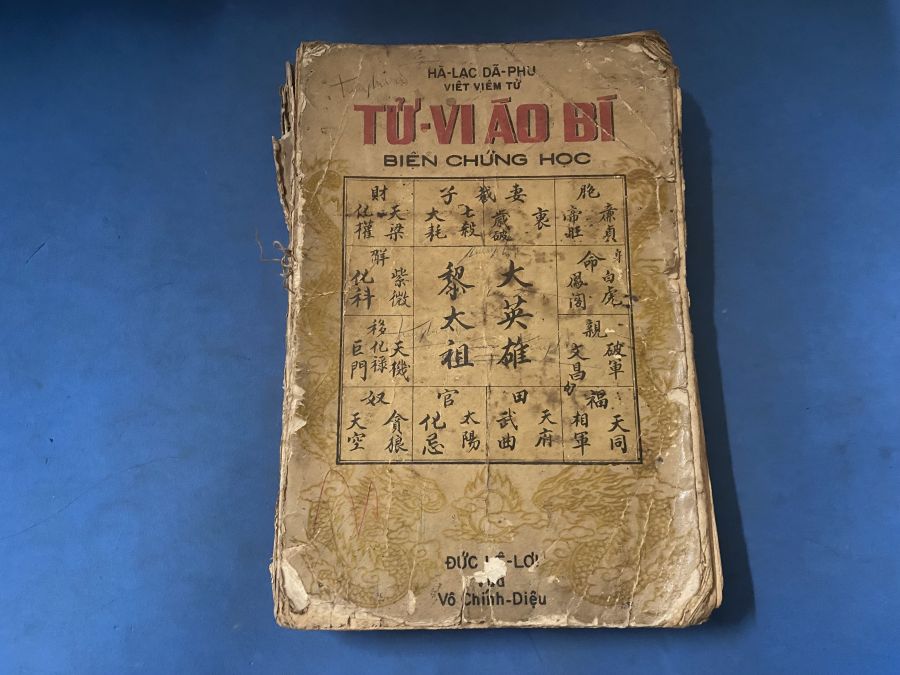 HÀ-LẠC DÃ-PHU
VIỆT VIÊM TỬ
TỬ-VI ÁO BÍ
BIỆN CHỨNG HỌC
財
天梁
化權
子
七殺
大耗
截
妻
衰
歲破
胞
廉貞
帝旺
解
紫微
化科
大英雄
黎太祖
命
身
白虎
鳳閣
移
化祿
天機
巨門
親
破軍
文昌
奴
貪狼
天空
官
太陽
化忌
田
天府
武曲
福
天同
相軍
ĐỨC LÊ-LỢI
Vô Chính-Diệu